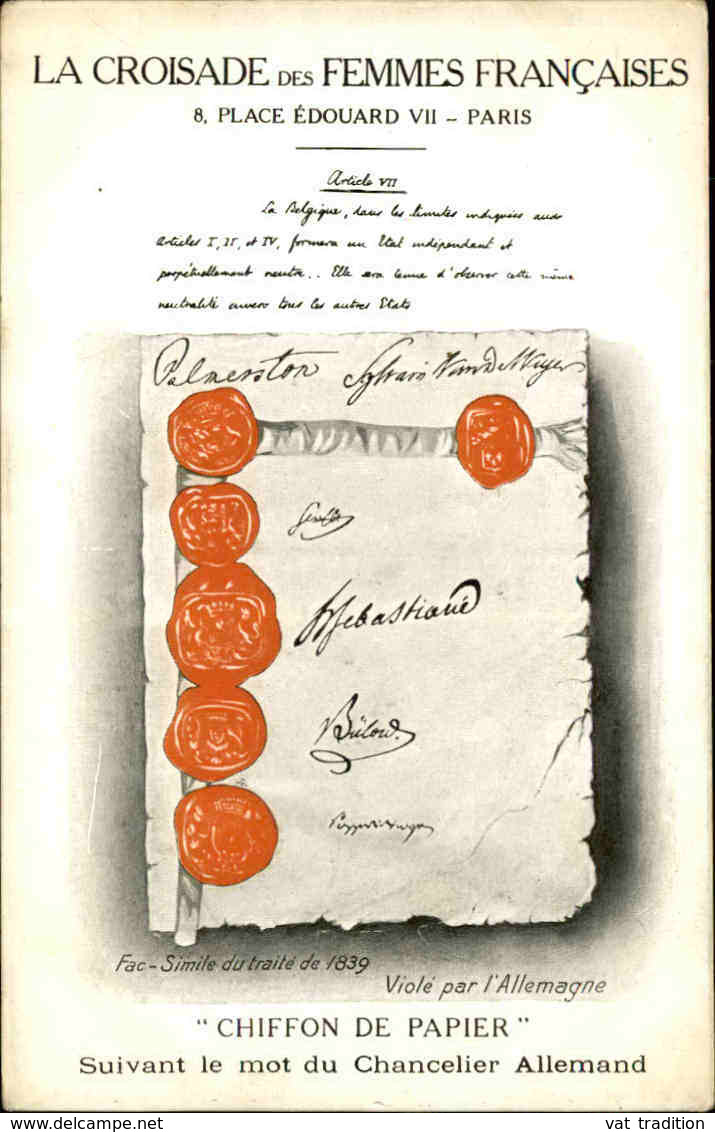 LA CROISADE DES FEMMES FRANÇAISES
8, PLACE ÉDOUARD VII – PARIS
Article VII
La Belgique, dans les limites indiquées aux
Articles I, II, et IV, formera un Etat indépendant et
perpétuellement neutre.. Elle sera tenue d'observer cette même
neutralité envers tous les autres Etats
Palmerston Sylvain Van de Weyer
Senfft
H Sebastiani
Bülow.
Fac-Simile du traité de 1839
Violé par l'Allemagne
" CHIFFON DE PAPIER "
Suivant le mot du Chancelier Allemand
vat tradition